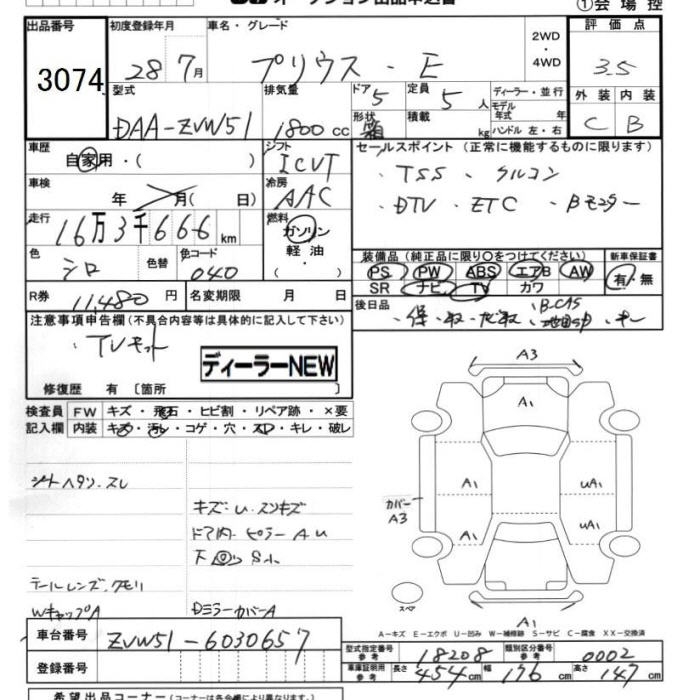 オークション出品申込書
①会場控
出品番号 初度登録年月 車名・グレード 評価点
3074 28年7月 プリウス・E 2WD・4WD 3.5
型式 排気量 ドア 定員 ディーラー・並行 外装 内装
DAA-ZVW51 1800cc 5 5人 モデル年式 年 C B
形状 箱 積載 kg ハンドル 左・右
車歴 シフト セールスポイント (正常に機能するものに限ります)
自家用・( ) ICVT ・TSS ・クルコン
車検 年 月( 日) 冷房 AAC ・DTV ・ETC ・Bモニター
走行 16万3千666km 燃料 ガソリン
軽油・( )
色 シロ 色替 色コード 040
装備品 (純正品に限り○をつけてください) 新車保証書
PS PW ABS エアB AW 有・無
SR ナビ TV カワ
R券 11,480円 名変期限 月 日
後日品 ・保・取・ナビ取・B-CAS ・キー
注意事項申告欄 (不具合内容等は具体的に記入して下さい)
・TVキット
ディーラーNEW
修復歴 有 [箇所 ]
検査員 FW キズ・飛石・ヒビ割・リペア跡・×要
記入欄 内装 キズ・汚レ・コゲ・穴・スレ・キレ・破レ
シートヘタリ・スレ
キズ・U・スリキズ
ドア内・ピラーA・U
下回りS1
テールレンズ、クモリ
WキャップA Dミラーカバー A
A3
A1
A1 UA1
カバー A3
A1 UA1
スペア
A1
A-キズ E-エクボ U-凹み W-補修跡 S-サビ C-腐食 XX-交換済
車台番号 ZVW51-6030657
登録番号
型式指定番号 参考 18208 類別区分番号 参考 0002
車庫証明用 参考 長さ 454cm 幅 176cm 高さ 147cm
希望出品コーナー (コーナーは各会場により異なります)